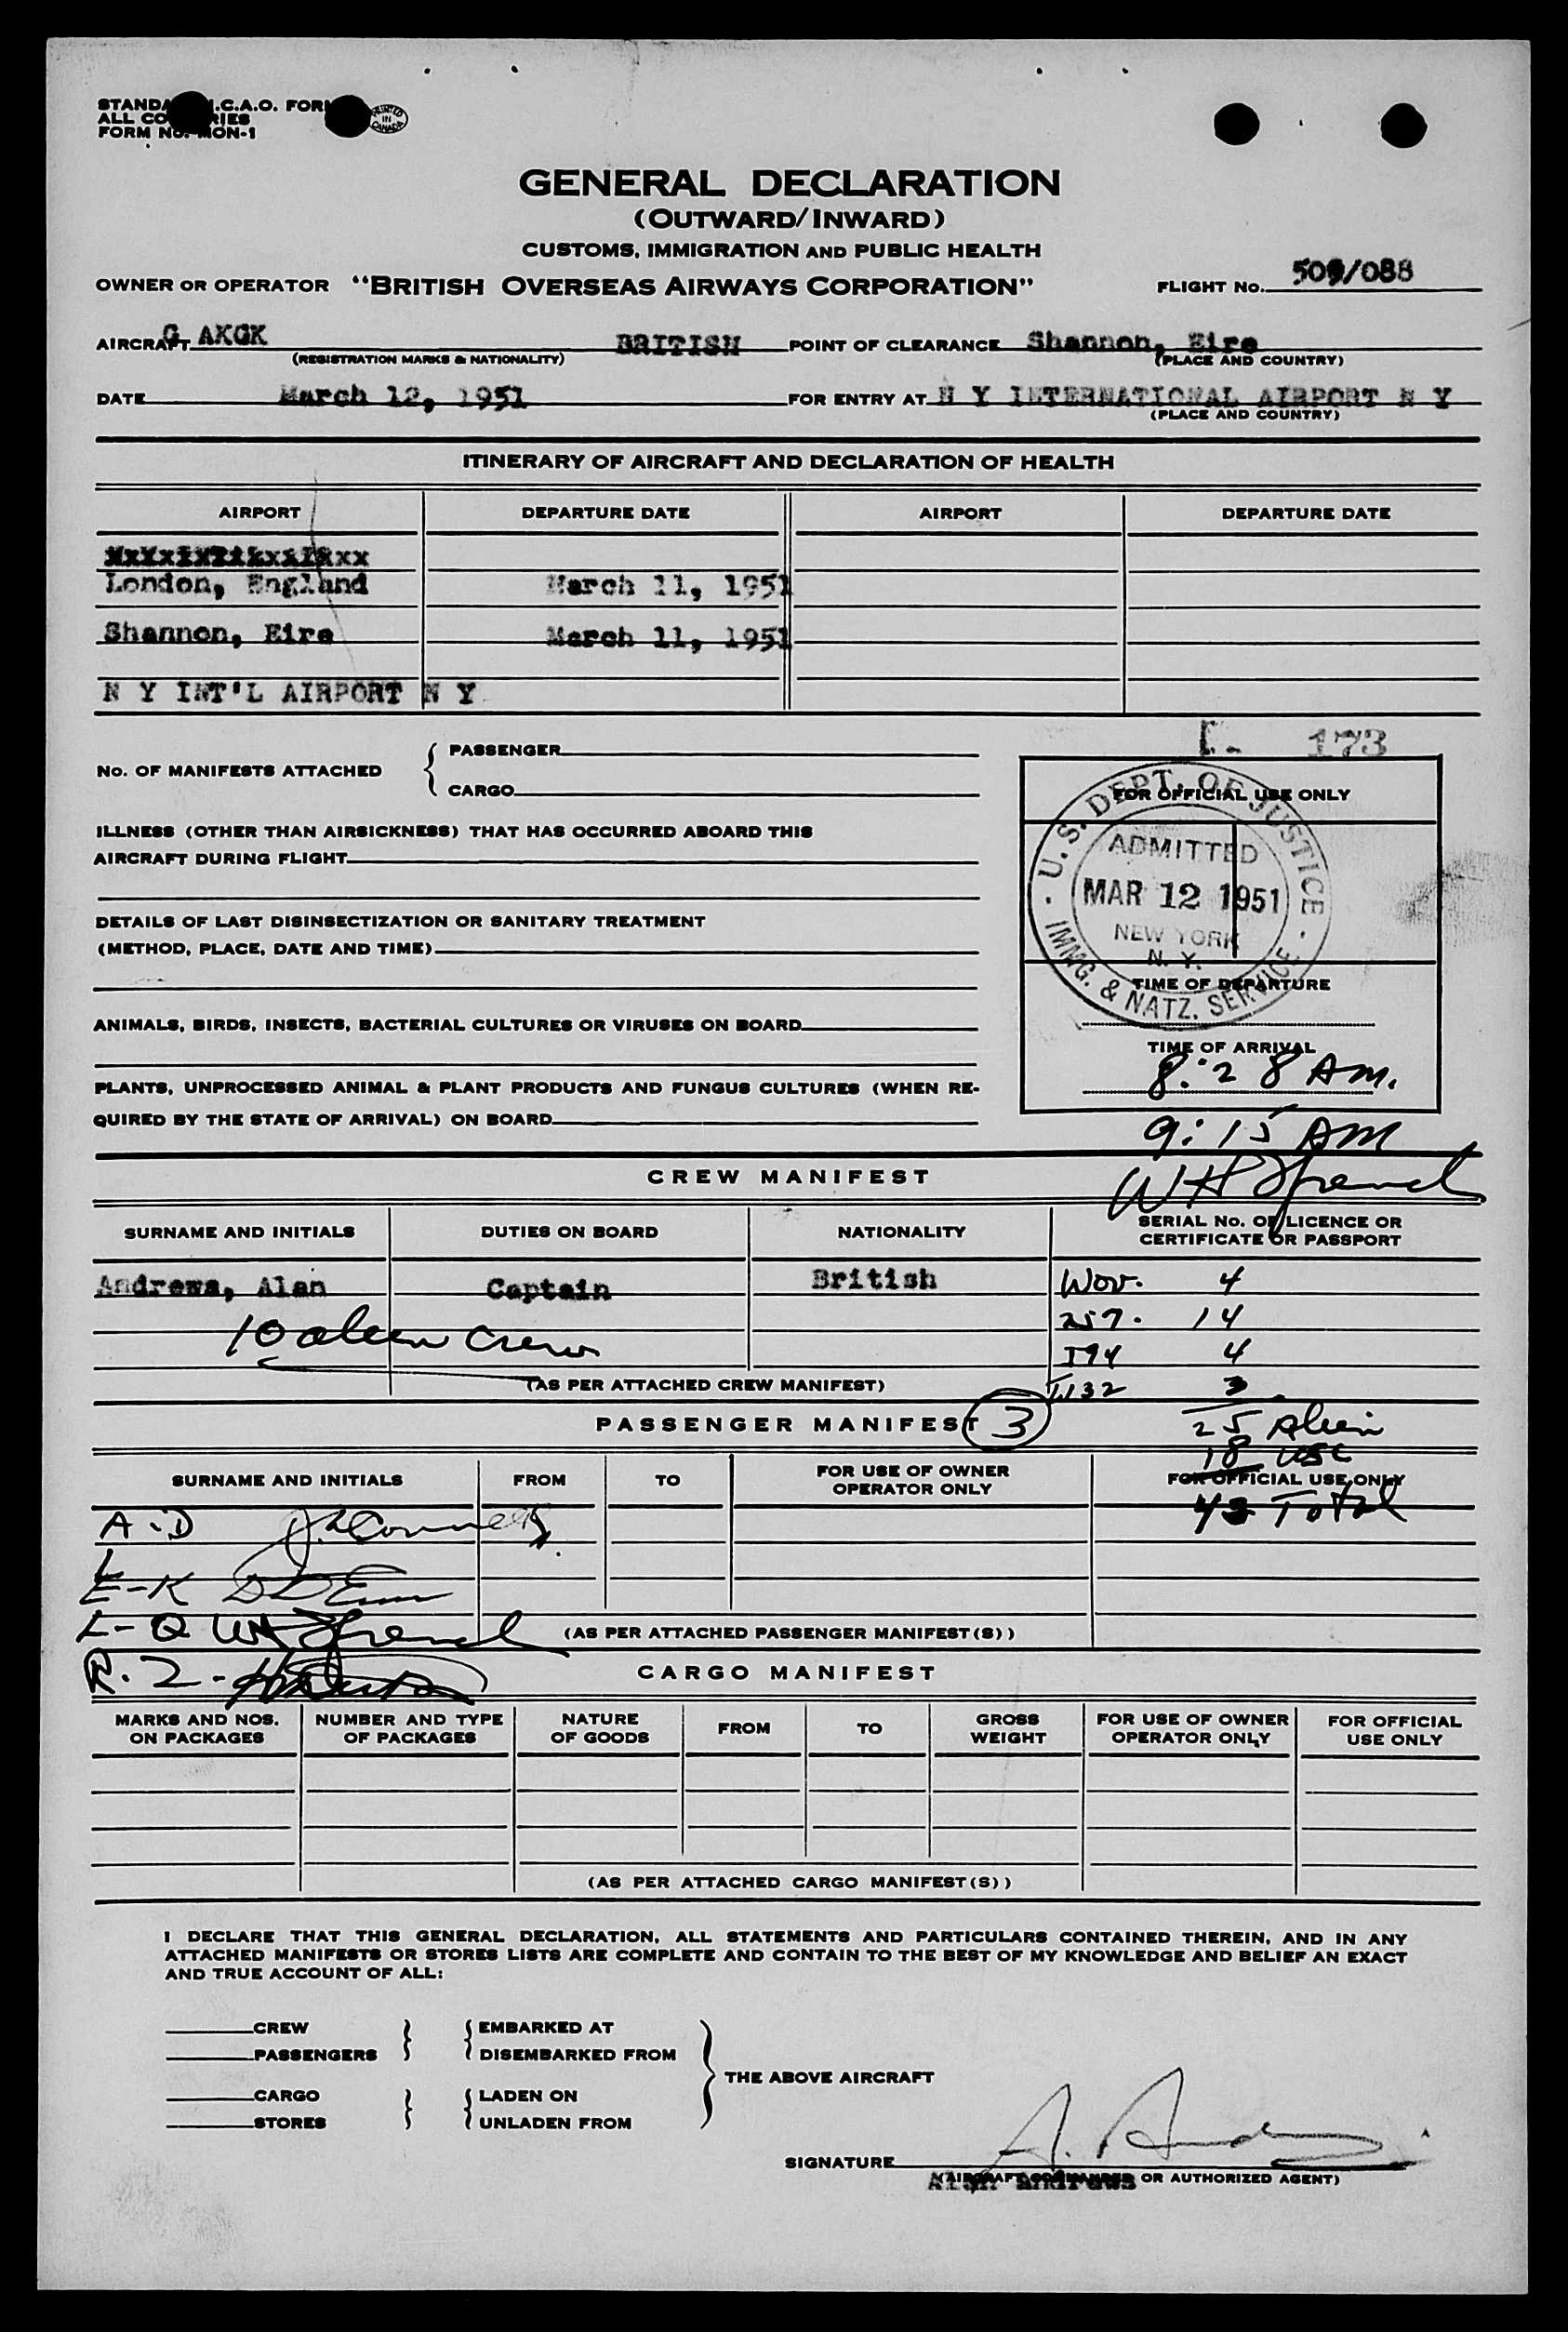 STANDA .C.A.O. FOR
ALL CO RIES
FORM NO. MON-1
PRINTED IN CANADA
GENERAL DECLARATION
(OUTWARD/INWARD)
CUSTOMS, IMMIGRATION AND PUBLIC HEALTH
OWNER OR OPERATOR "BRITISH OVERSEAS AIRWAYS CORPORATION" FLIGHT NO. 509/088
AIRCRAFT G AKGK BRITISH POINT OF CLEARANCE Shannon, Eire
(REGISTRATION MARKS & NATIONALITY) (PLACE AND COUNTRY)
DATE March 12, 1951 FOR ENTRY AT N Y INTERNATIONAL AIRPORT N Y
(PLACE AND COUNTRY)
ITINERARY OF AIRCRAFT AND DECLARATION OF HEALTH
AIRPORT DEPARTURE DATE AIRPORT DEPARTURE DATE
London, England March 11, 1951
Shannon, Eire March 11, 1951
N Y INT'L AIRPORT N Y
173
NO. OF MANIFESTS ATTACHED { PASSENGER
CARGO
FOR OFFICIAL USE ONLY
ILLNESS (OTHER THAN AIRSICKNESS) THAT HAS OCCURRED ABOARD THIS
AIRCRAFT DURING FLIGHT
U.S. DEPT. OF JUSTICE
ADMITTED
MAR 12 1951
NEW YORK
N. Y.
IMMG. & NATZ. SERVICE
DETAILS OF LAST DISINSECTIZATION OR SANITARY TREATMENT
(METHOD, PLACE, DATE AND TIME)
TIME OF DEPARTURE
ANIMALS, BIRDS, INSECTS, BACTERIAL CULTURES OR VIRUSES ON BOARD
TIME OF ARRIVAL
8:28 AM.
PLANTS, UNPROCESSED ANIMAL & PLANT PRODUCTS AND FUNGUS CULTURES (WHEN RE-
QUIRED BY THE STATE OF ARRIVAL) ON BOARD
9:15 AM
CREW MANIFEST
SURNAME AND INITIALS DUTIES ON BOARD NATIONALITY SERIAL NO. OF LICENCE OR
CERTIFICATE OR PASSPORT
Andrews, Alan Captain British Wov. 4
10 alien crew 257. 14
I94 4
(AS PER ATTACHED CREW MANIFEST) 3
PASSENGER MANIFEST 3 25 Alien
18 USC
SURNAME AND INITIALS FROM TO FOR USE OF OWNER
OPERATOR ONLY FOR OFFICIAL USE ONLY
43 Total
A-D
E-K
L-Q
(AS PER ATTACHED PASSENGER MANIFEST(S))
R-Z
CARGO MANIFEST
MARKS AND NOS.
ON PACKAGES NUMBER AND TYPE
OF PACKAGES NATURE
OF GOODS FROM TO GROSS
WEIGHT FOR USE OF OWNER
OPERATOR ONLY FOR OFFICIAL
USE ONLY
(AS PER ATTACHED CARGO MANIFEST(S))
I DECLARE THAT THIS GENERAL DECLARATION, ALL STATEMENTS AND PARTICULARS CONTAINED THEREIN, AND IN ANY
ATTACHED MANIFESTS OR STORES LISTS ARE COMPLETE AND CONTAIN TO THE BEST OF MY KNOWLEDGE AND BELIEF AN EXACT
AND TRUE ACCOUNT OF ALL:
CREW } { EMBARKED AT
PASSENGERS DISEMBARKED FROM
} THE ABOVE AIRCRAFT
CARGO } { LADEN ON
STORES UNLADEN FROM
SIGNATURE A. Andrews
(AIRCRAFT COMMANDER OR AUTHORIZED AGENT)
Alan Andrews